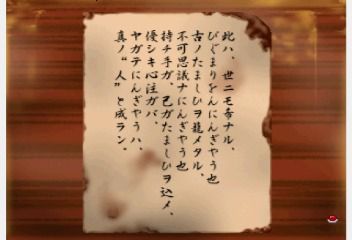 此ハ、世ニモ奇ナル、
ぴぐまりをんにんぎやう也
古ノたましひヲ籠メタル、
不可思議ナにんぎやう也
持チ手ガ、己ガたましひヲ込メ、
優シキ心注ガバ、
ヤガテにんぎやうハ、
真ノ“人”と成ラン。